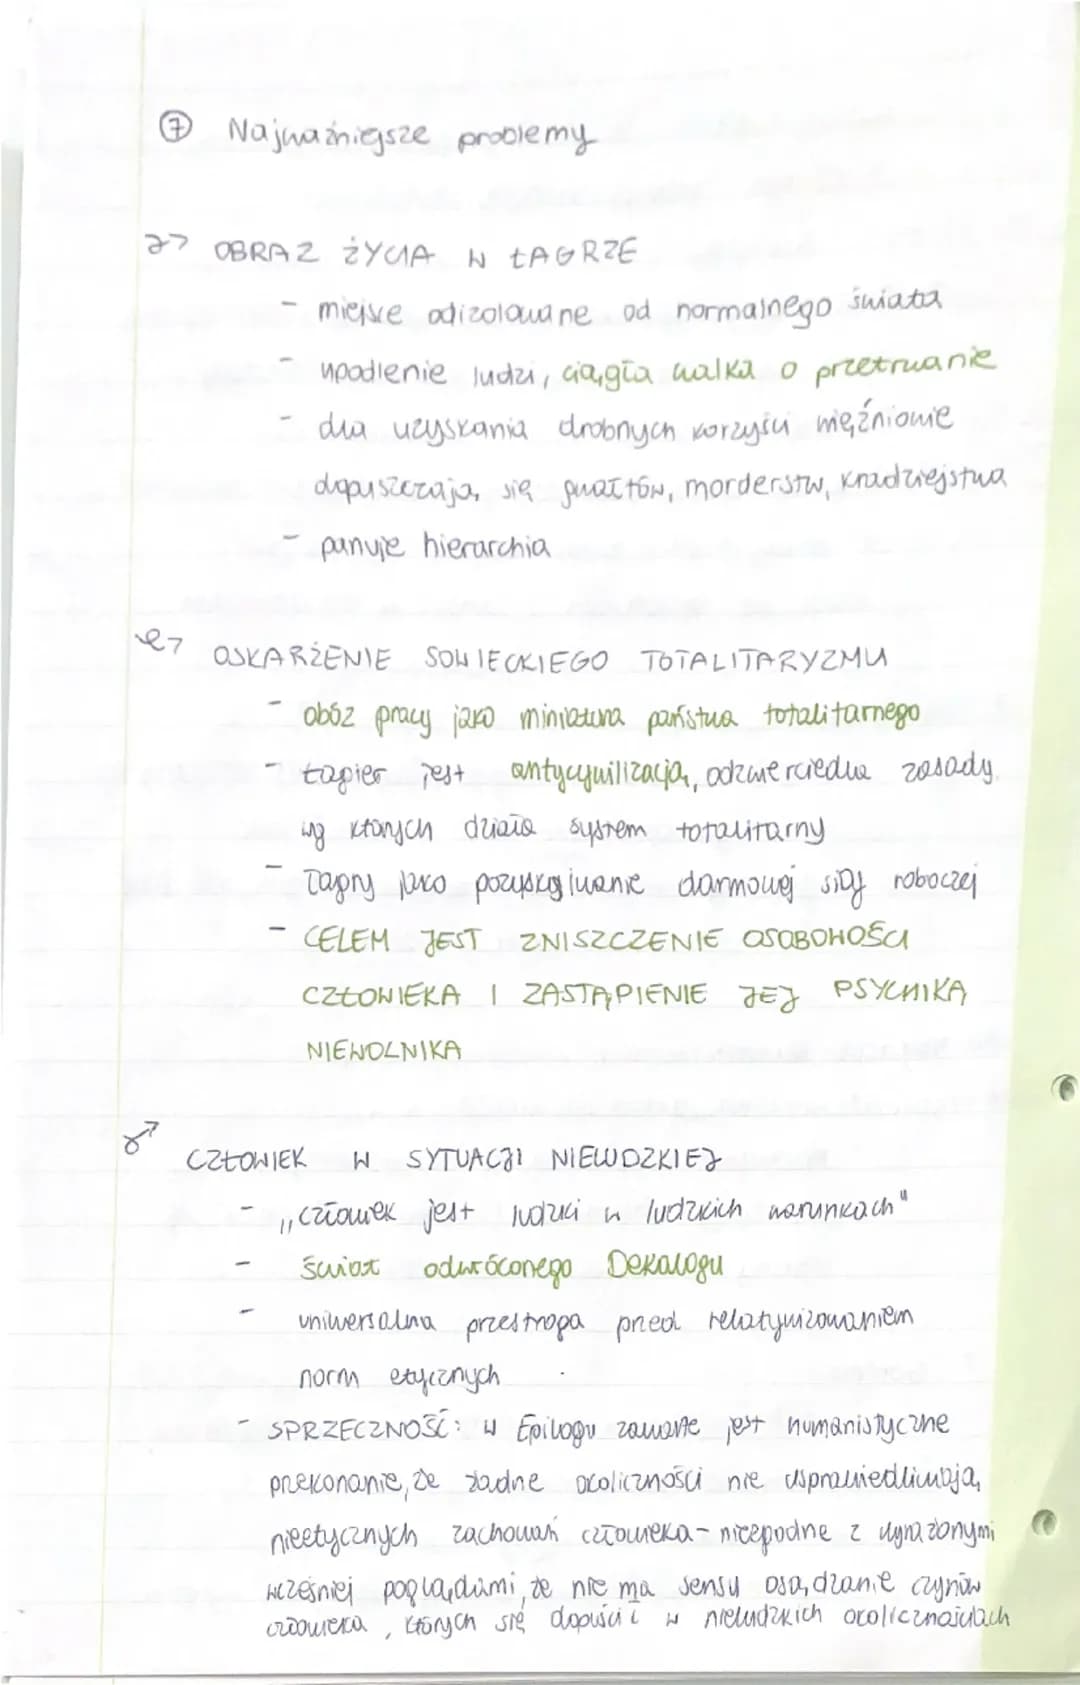 ⑦ Najważniejsze problemy
OBRAZ ŻYCIA W ŁAGRZE
- miejsce odizolowane od normalnego świata
- upodlenie ludzi, ciągła walka o przetrwanie
- dla uzyskania drobnych korzyści więźniowie
dopuszczają się gwałtów, morderstw, kradziejstwa
- panuje hierarchia
OSKARŻENIE SOWIECKIEGO TOTALITARYZMU
- obóz pracy jako miniatura państwa totalitarnego
- łagier jest antycywilizacją, odzwierciedla zasady,
wg których działa system totalitarny
- łagry jako pozyskiwanie darmowej siły roboczej
- CELEM JEST ZNISZCZENIE OSOBOWOŚCI
CZŁOWIEKA I ZASTĄPIENIE JEJ PSYCHIKĄ
NIEWOLNIKA
CZŁOWIEK W SYTUACJI NIELUDZKIEJ
- „człowiek jest ludzki w ludzkich warunkach"
- świat odwróconego Dekalogu
- uniwersalna przestroga przed relatywizowaniem
norm etycznych
- SPRZECZNOŚĆ: w Epilogu zawarte jest humanistyczne
przekonanie, że żadne okoliczności nie usprawiedliwiają
nieetycznych zachowań człowieka - niezgodne z wyrażonymi
wcześniej poglądami, że nie ma sensu osądzanie czynów
człowieka, których się dopuścił w nieludzkich okolicznościach